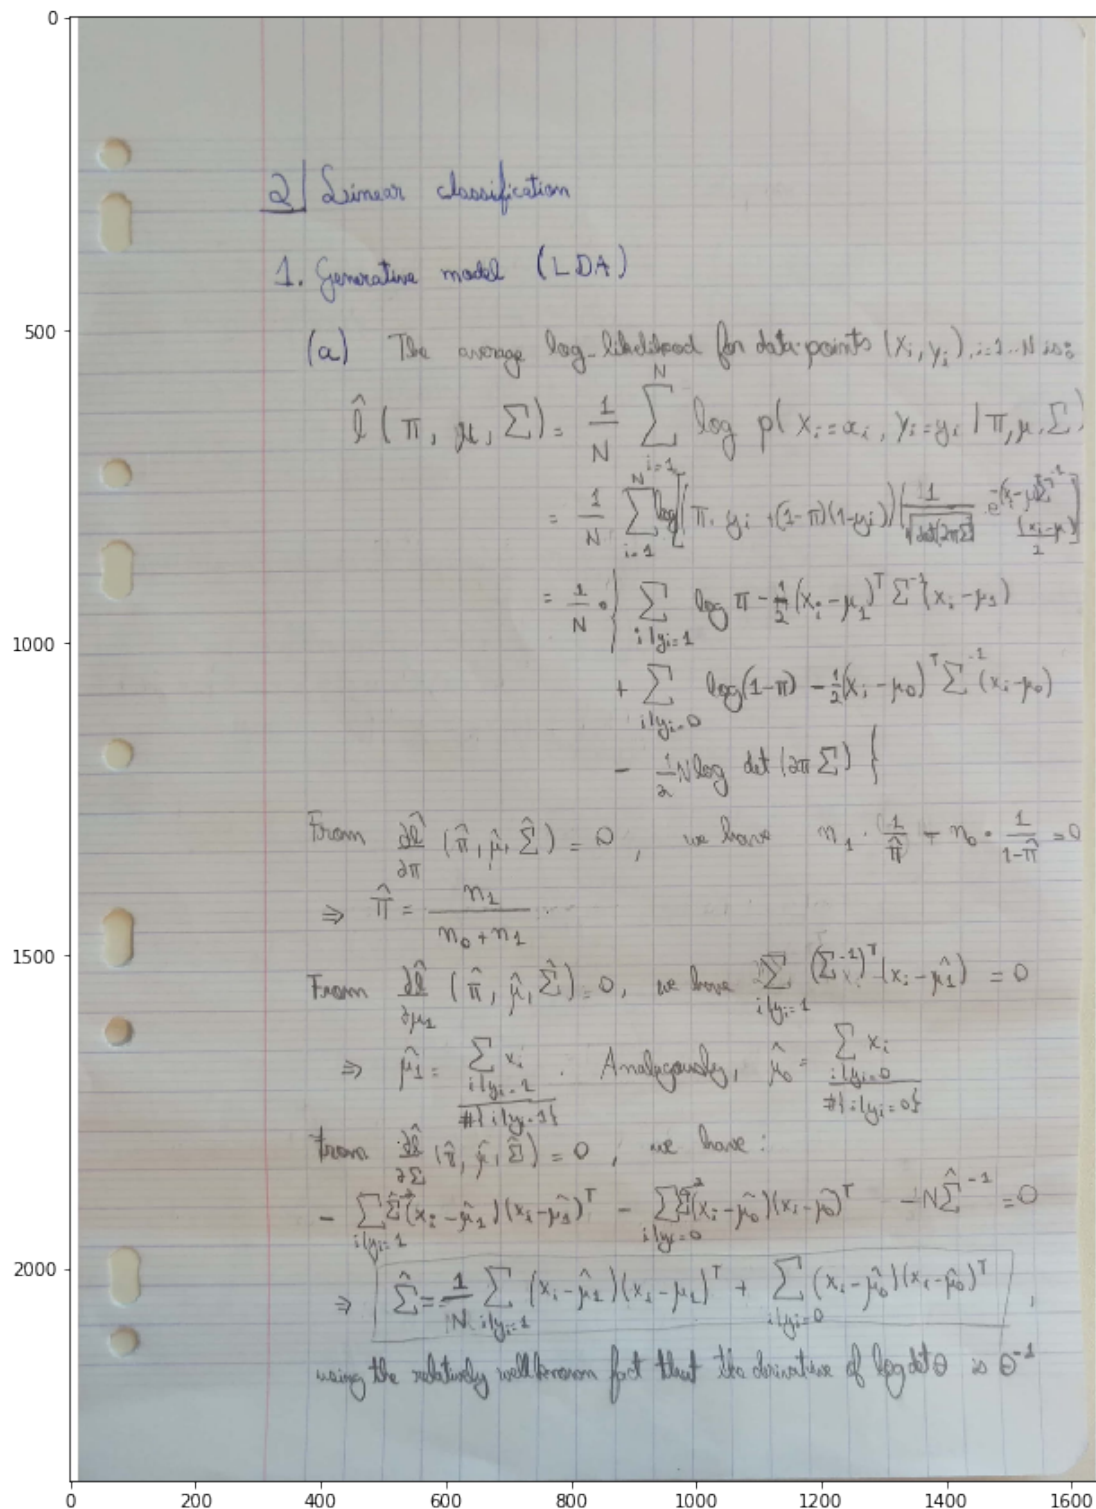 2| Linear classification
1. Generative model (LDA)
(a) The average log-likelihood for data-points (x_i, y_i), i=1..N is:
l̂(π, μ, Σ) = 1/N Σ_{i=1}^{N} log p(X_i = x_i, Y_i = y_i | π, μ, Σ)
= 1/N Σ_{i=1}^{N} log[(π. y_i + (1-π)(1-y_i)) (1/√det(2πΣ) e^{-(x_i-μ)^T Σ^{-1} (x_i-μ)/2}]
= 1/N · } Σ_{i|y_i=1} log π - 1/2 (x_i - μ_1)^T Σ^{-1} (x_i - μ_1)
+ Σ_{i|y_i=0} log(1-π) - 1/2 (x_i - μ_0)^T Σ^{-1} (x_i - μ_0)
- 1/2 N log det (2π Σ) {
From ∂l̂/∂π (π̂, μ̂, Σ̂) = 0, we have n_1 · 1/π̂ - n_0 · 1/(1-π̂) = 0
⇒ π̂ = n_1/(n_0 + n_1)
From ∂l̂/∂μ_1 (π̂, μ̂, Σ̂) = 0, we have Σ_{i|y_i=1} (Σ^{-1})^T (x_i - μ̂_1) = 0
⇒ μ̂_1 = Σ_{i|y_i=1} x_i / #{i|y_i=1} . Analogously, μ̂_0 = Σ_{i|y_i=0} x_i / #{i|y_i=0}
From ∂l̂/∂Σ (π̂, μ̂, Σ̂) = 0, we have:
- Σ_{i|y_i=1} Σ̂^{-2} (x_i - μ̂_1)(x_i - μ̂_1)^T - Σ_{i|y_i=0} Σ̂^{-2} (x_i - μ̂_0)(x_i - μ̂_0)^T - N Σ̂^{-1} = 0
⇒ Σ̂ = 1/N Σ_{i|y_i=1} (x_i - μ̂_1)(x_i - μ_1)^T + Σ_{i|y_i=0} (x_i - μ̂_0)(x_i - μ̂_0)^T ,
using the relatively well known fact that the derivative of log det Θ is Θ^{-1}
0
500
1000
1500
2000
0 200 400 600 800 1000 1200 1400 1600